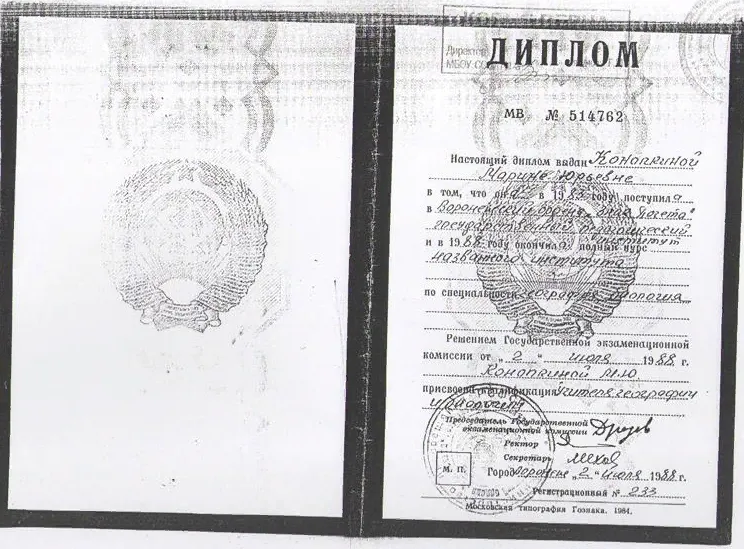 Директор
МБОУ СО
ДИПЛОМ
МВ № 514762
Настоящий диплом выдан Конапкиной
Марине Юрьевне
в том, что он а в 1983 году поступил а
в Воронежский ордена „Знак Почета"
государственный педагогический
институт
и в 1988 году окончил а полный курс
названного института
по специальности география биология
Решением Государственной экзаменационной
комиссии от „ 2 " июля 1988 г.
Конапкиной М.Ю.
присвоена квалификация Учителя географии
и биологии
Председатель Государственной
экзаменационной комиссии
Ректор
Секретарь
М. П.
Город Воронеж „ 2 " июля 1988 г.
Регистрационный № 233
Московская типография Гознака. 1984.